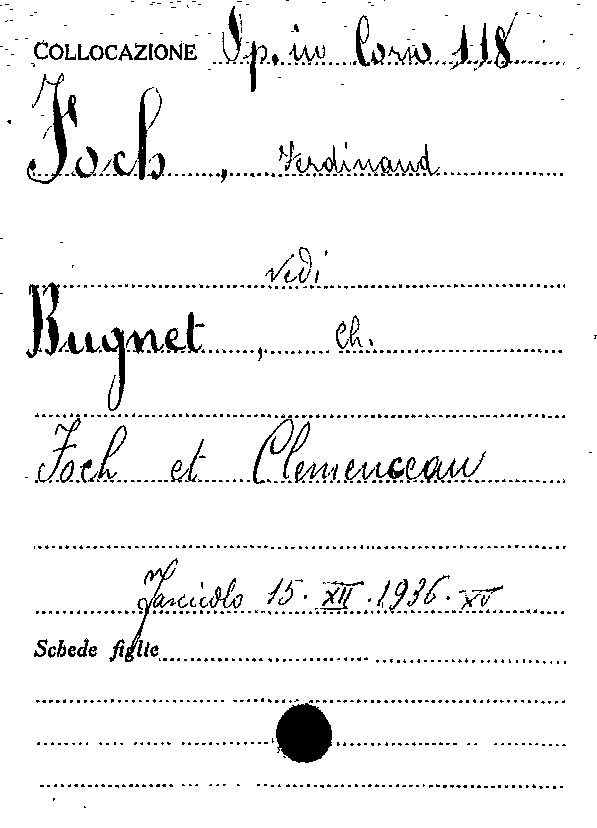 COLLOCAZIONE Op. in Corso 118
Foch, Ferdinand
vedi
Bugnet, Ch.
Foch et Clemenceau
Fascicolo 15. XII. 1936. XV
Schede figlie